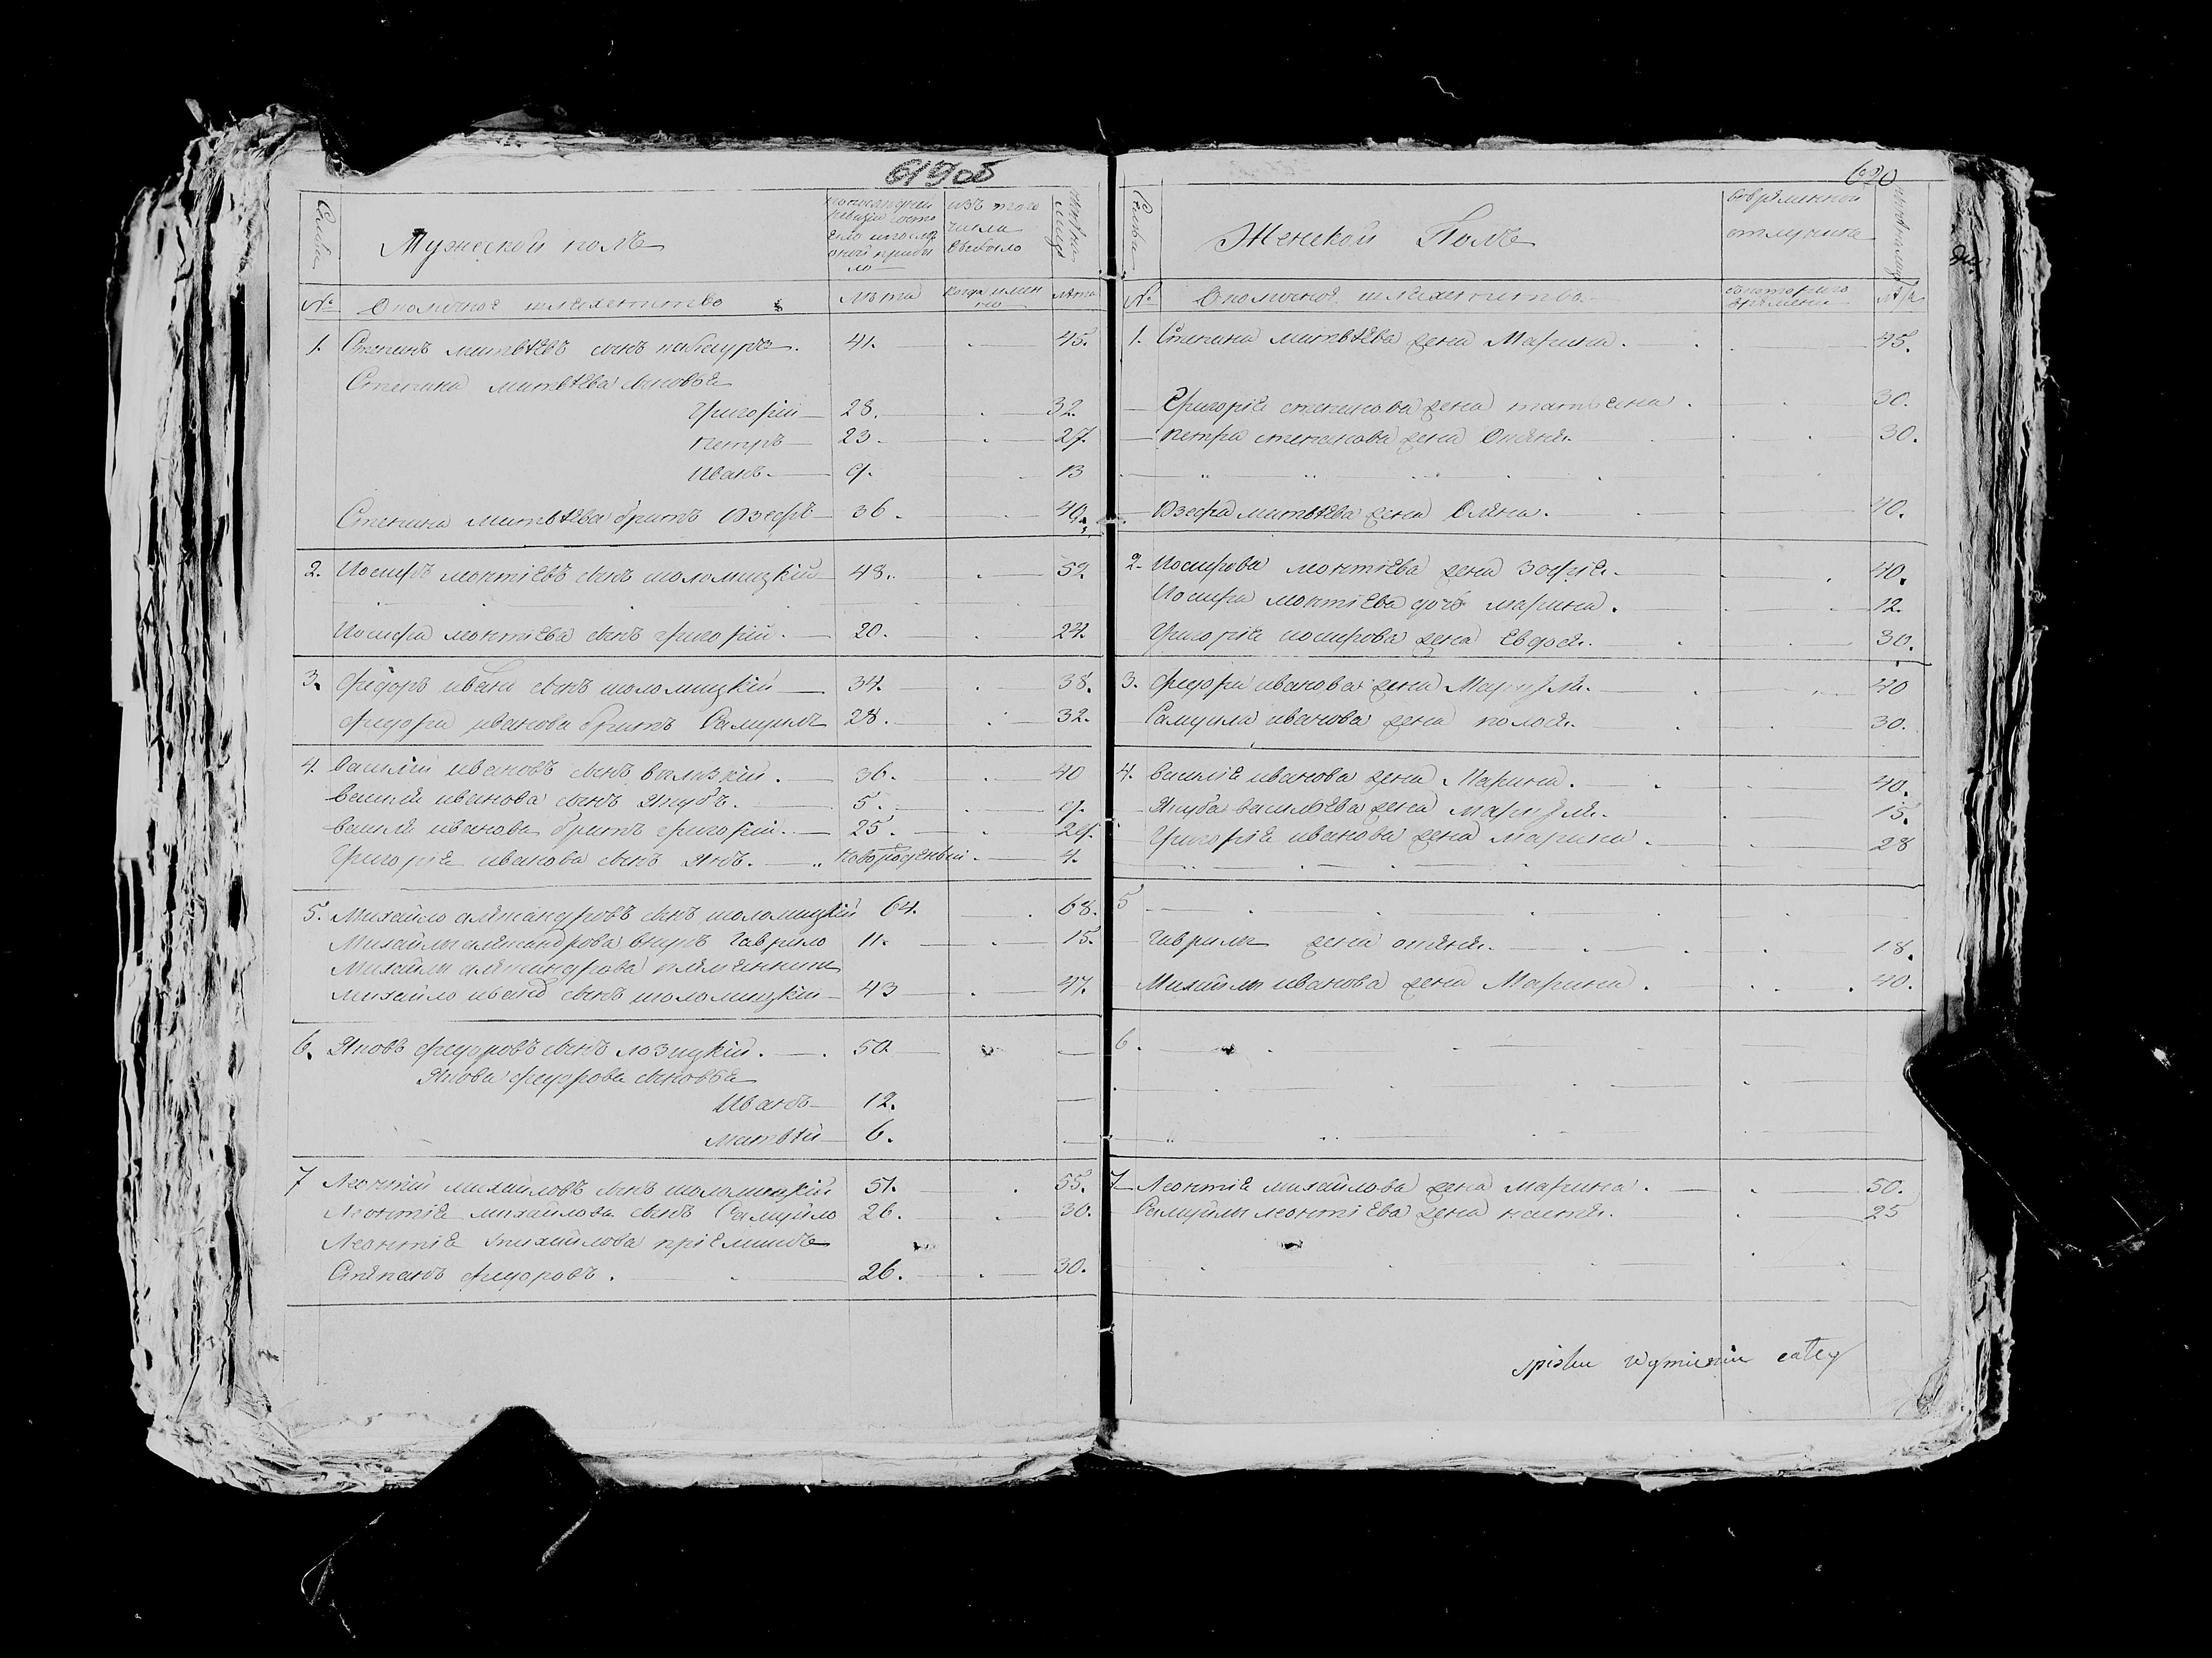 619 об
Семьи
Мужеской полъ
по последней ревизіи состояло и после оной прибыло
изъ того числа выбыло
ныне на лицо
№
Околичное шляхетство
лета
когда именно
лета
1. Степанъ матвѣевъ сынъ 41. 45.
Степана матвѣева сыновья
григорій 28. 32.
петръ 23. 27.
Иванъ 9. 13
Степана матвѣева братъ Юзефъ 36. 40.
2. Иосифъ леонтіевъ сынъ шоломицкій 48. 52.
Иосифа леонтіева сынъ григорій. 20. 24.
3. Фѣдоръ ивано сынъ шоломицкій 34. 38.
Федора иванова братъ Самуилъ 28. 32.
4. Василій ивановъ сынъ 36. 40
Василя иванова сынъ Якубъ. 5. 9.
Василя иванова братъ григорій. 25. 29.
Григорія иванова сынъ Янъ. новорожденый. 4.
5. Михайло александровъ сынъ шоломицкій 64. 68.
Михайлы александрова внукъ гаврило 11. 15.
Михайлы александрова племянникъ
михайло ивано сынъ шоломицкій 43 47.
6. Яковъ федоровъ сынъ лозицкій. 50.
Якова федорова сыновья
Иванъ 12.
матвѣй 6.
7 Леонтій михайловъ сынъ шоломицкій 51. 55.
Леонтія михайлова сынъ Самуйло 26. 30.
Леонтія михайлова пріемышъ
Степанъ федоровъ. 26. 30.
620
Семьи
Женской Полъ
во врѣменной отлучке
ныне на лицо
№
Околичное шляхетство
съ котораго врѣмени
лѣта
1. Степана матвѣева жена Марина. 45.
Григорія степанова жена татьяна. 30.
петра степанова жена 30.
Юзефа матвѣева жена Олена. 40.
2. Иосифова леонтіева жена Зофія. 40.
Иосифа леонтіева дочь марина. 12.
григорія иосифова жена Евдося. 30.
3. федора иванова жена 40
Самуила иванова жена 30.
4. Василія иванова жена Марина. 40.
Якуба васильева жена 15.
Григорія иванова жена марина. 28
5
гаврилы жена 18.
Михайлы иванова жена Марина. 40.
6.
7 Леонтія михайлова жена марина. 50.
Самуйлы леонтіева жена настя. 25